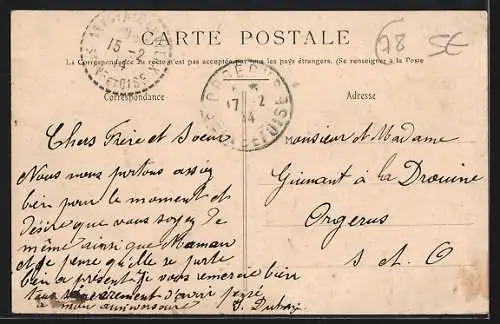 CARTE POSTALE
78 SE
La Correspondance au recto n'est pas acceptée par tous les pays étrangers. (Se renseigner à la Poste
Correspondance
Adresse
15-2
14
SEINE-ET-OISE
ORGERUS
17 -2
14
SEINE-ET-OISE
Chers Frère et Soeur
Nous nous portons assez
bien pour le moment et
désire que vous soyez de
même ainsi que Maman
et je pense qu'elle se porte
bien a présent Je vous remercie bien
tous d'avoir pensé
a mon anniversaire
Monsieur et Madame
à la
Orgerus
S et O